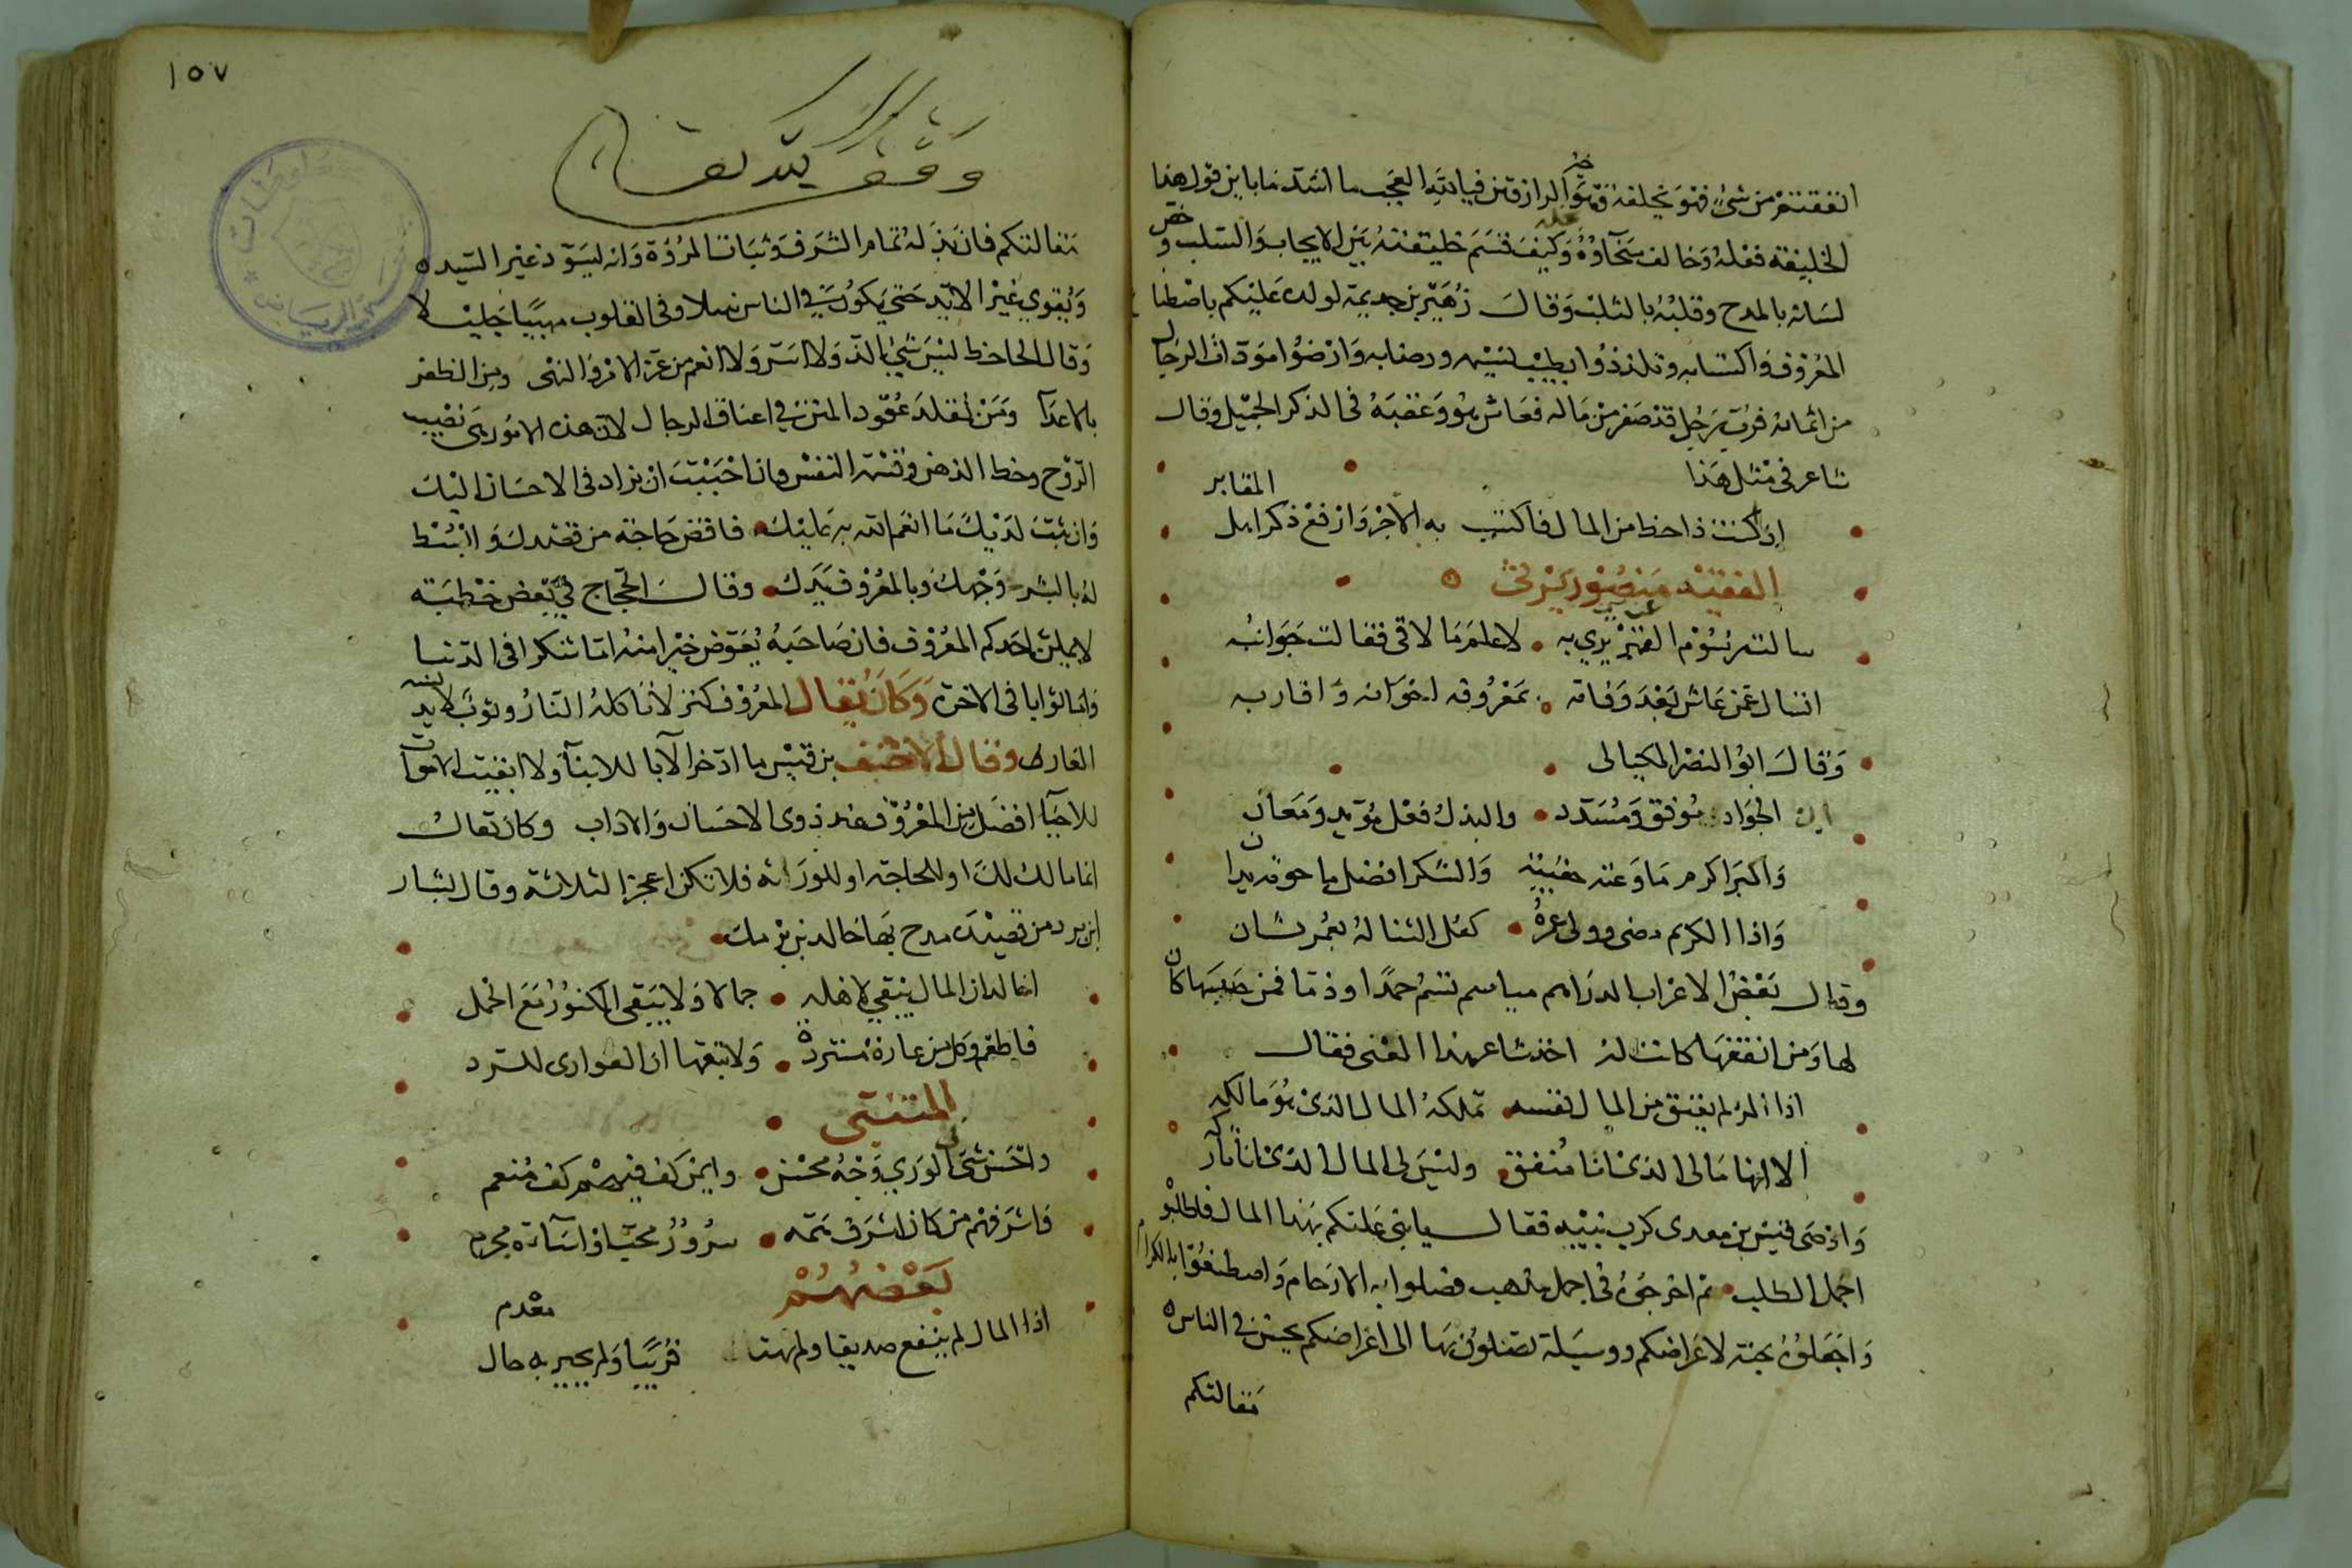 انفقتم من شئ فهو يخلفه وهو خير الرازقين فيالله العجب ما اشد ما باين قول هذا
الخليفة فعله وخالف سخاؤه وكيف قسم خليقته بين الايجاب والسلب وخص
لسانه بالمدح وقلبه بالثلب وقال زهير بن جديمة لولده عليكم باصطناع
المعروف واكتسابه وتلذذوا بطيب نسيمه ورضابه وارضوا مودات الرجال
من اثمانه فرب رجل قد صفر من ماله فعاش هو وعقبه في الذكر الجميل وقال
شاعر في مثل هذا
اذ كنت ذا حظ من المال فاكتسب به الاجر وارفع ذكر اهل المقابر
الفقيه منصور يرثي
سالت رسوم القبر عن من به لاعلم ما لاقى فقالت جوانبه
اتسال عمن عاش بعد وفاته بمعروفه اخوانه واقاربه
وقال ابو النصر المكيالى
ان الجواد موفق ومسدد والبذل فعل مؤيد ومعان
والبر اكرم ما وعته حقيبة والشكر افضل ما حوته يدان
واذا الكريم مضى وولى عمره كفل الثنا له بعمر ثان
وقال بعض الاعراب الدراهم مياسم تسم حمدا وذما فمن حبسها كان
لها ومن انفقها كانت له اخذ شاعر هذا المعنى فقال
اذا المرء لم يعتق من المال نفسه تملكه المال الذي هو مالكه
الا انما مالى الذى انا منفق وليس لى المال الذى انا تاركه
واوصى قيس بن معدى كرب بنيه فقال يا بنى عليكم بهذا المال فاطلبوه
اجمل الطلب ثم اخرجوه في اجمل مذهب فصلوا به الارحام واصطنعوا به الكرام
واجعلوه جنة لاعراضكم ووسيلة تصلون بها الى اغراضكم يحسن في الناس
مقالتكم
١٥٧
وقف لله تعالى
مقالتكم فان بذله تمام الشرف وثبات المروة وانه ليسود غير السيد
ويقوي غير الايد حتى يكون في الناس نبيلا وفى القلوب مهيبا جليلا
وقال الجاحظ ليس شئ الذ ولا اسر ولا انعم من عز الامر والنهى ومن الظفر
بالاعدا ومن تقلد عقود المنن في اعناق الرجال لان هذه الامور هى نصيب
الروح وحظ الذهن وقسم النفس وان احببت ان تزاد فى الاحسان اليك
وان يثبت لديك ما انعم الله به عليك فاقض حاجة من قصدك وابسط
له بالبشر وجهك وبالمعروف يدك وقال الحجاج في بعض خطبه
لا يملن احدكم المعروف فان صاحبه يعوض خيرا منه اما شكرا فى الدنيا
واما ثوابا فى الاخرة وكان يقال المعروف كنز لا تاكله النار وثوب لا يدنسه
العار وقال الاحنف بن قيس ما ادخر الآبا للابنا ولا ابقيت الاموات
للاحيا افضل من المعروف عند ذوى الاحسان والاداب وكان يقال
انما مالك لك او للحاجة او للورثة فلا تكن اعجز الثلاثة وقال بشار
ابن برد من قصيدة مدح بها خالد بن برمك
اخالد ان المال يبقي لاهله جمالا ولا تبقى الكنوز مع الحمل
فاطعم وكل من عارة مستردة ولا تبقها ان العوارى للرد
المتنبي
واحسن شئ في الورى وجه محسن وايمن كف فيهم كف منعم
واشرفهم من كان اشرف همة سرور محب او اساءة مجرم
بعضهم
اذا المال لم ينفع صديقا ولم قريبا ولم يجبر به حال معدم